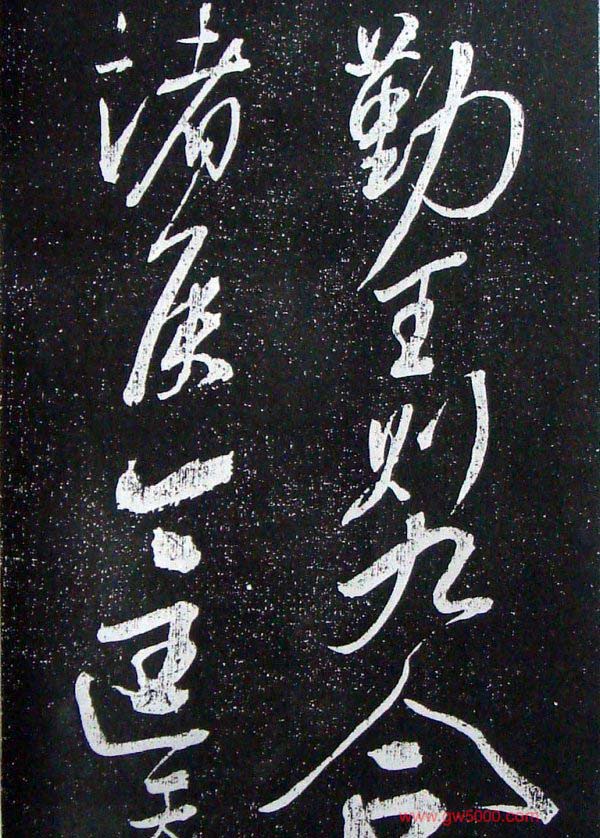 勤王則九合
諸侯一匡天
www.gw5000.com